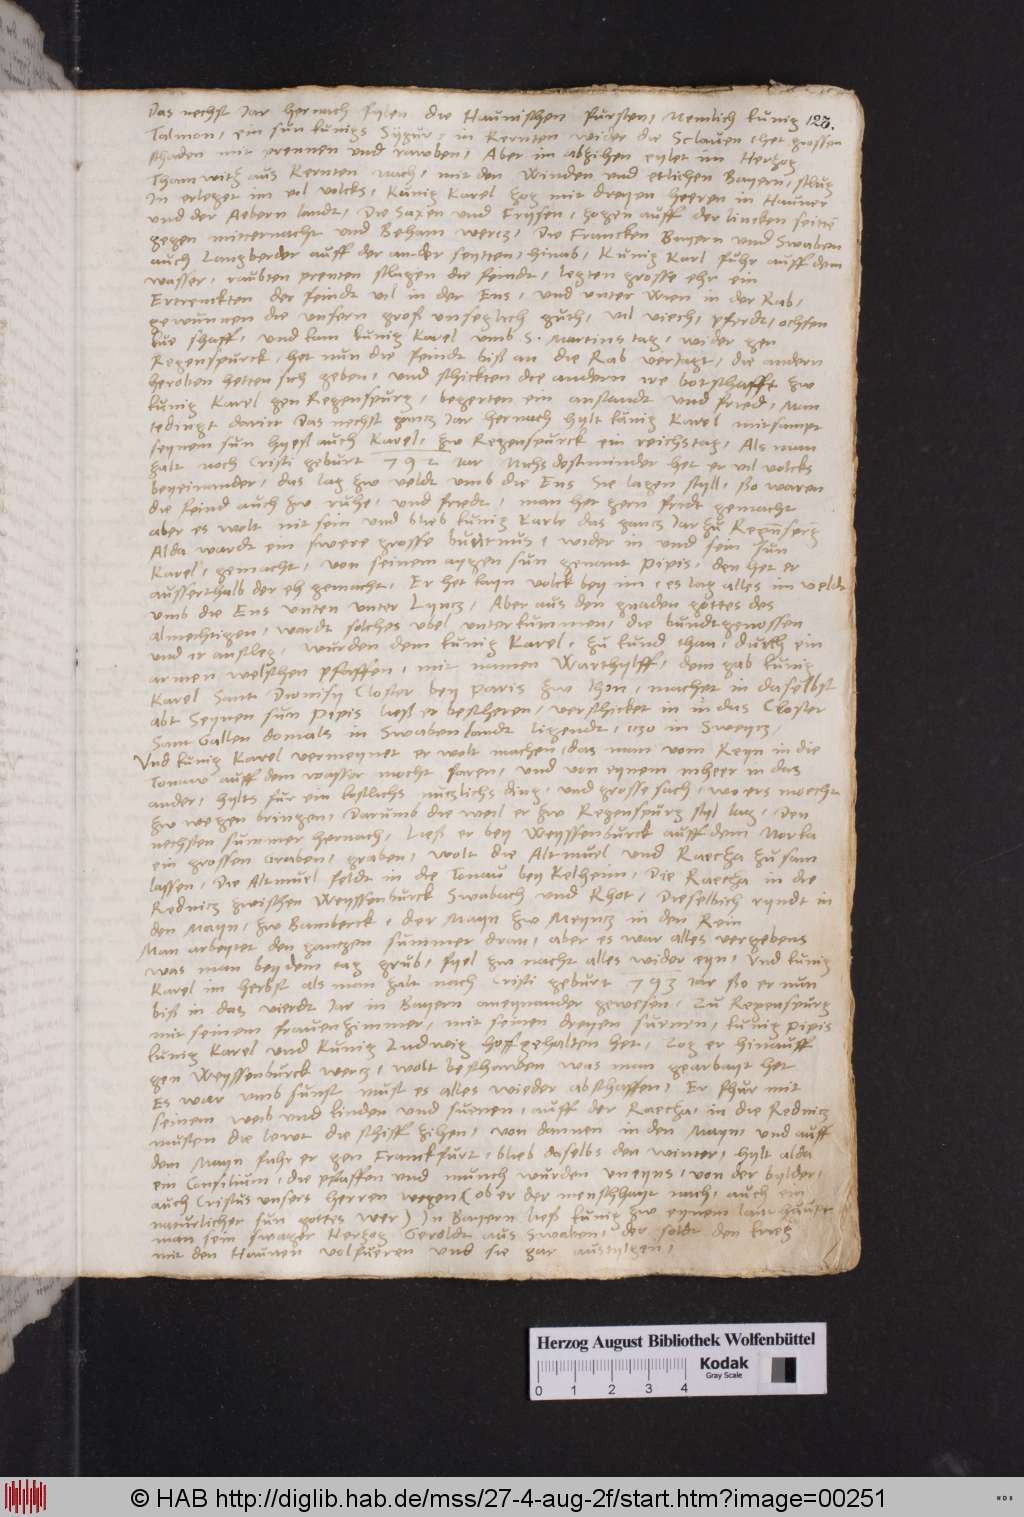 123.
Das nechst Jar hernach fylen die Haunischen fursten, Nemlich kunig
Talmon, ein sun kunigs Sygur, in Kernten wider die Sclauen thet grossen
schaden mit prennen und rawben, Aber im abzihen eylet im Hertzog
Thamwitz aus Kernten nach, mit den Winden und etlichen Bayern, schlug
In erleget im vil volcks, Kunig Karel zog mit dreyen heeren in Hauner
und der Aebern landt, Die Saxen und Frysen, zogen auff der lincken seitte
gegen mitternacht und Beham wercz, Die Francken Bayern und Swaben
auch Langberder auff der ander seytten, hinab, Kunig Karl fuhr auff dem
wasser, raubten prenten schlagen die feindt, legten grosse ehr ein
Ertrenckten der feindt vil in der Ens, und unter Wien in der Rab,
gewunnen die unsern groß unseglich guth, vil viech, pferdt, ochsen
kue schaff, und kam kunig Karel umb S. Martins tag, wider gen
Regenspurck, het nun die feindt biß an die Rab veriagt, die andern
heroben hetten sich geben, und schickten die andern ire botschafft zw
kunig Karel gen Regenspurg, begerten ein anstandt und fried, Man
tedingt darin Das nechst gantz Jar hernach hylt kunig Karel mitsampt
seynem sun hyess auch Karel, zw Regenspurck ein reichstag, Als man
zalt noch Cristi geburt 792 Jar Nichs destminder het er vil volcks
beyeinander, das lag zw veldt umb die Ens Sie lagen styll, ßo waren
die feind auch zw ruhe, und friedt, man het gern fridt gemacht
aber es wolt nit sein und blieb kunig Karle das gancz Jar zu Regenspurg
Alda wardt ein swere grosse buntnus, wider in und sein sun
Karel, gemacht, von seinem aygen sun genant Pipis, den het er
ausserthalb der eh gemacht, Er het kayn volck bey im, es lag alles im veldt
umb die Ens unten unter Lyncz, Aber aus den gnaden gottes des
almechtigen, wardt solches ubel unterkummen, die bundtgenossen
und ir anschleg, wurden dem kunig Karel, zu kund than, durch ein
armen welschen pfaffen, mit namen Warthylff, dem gab kunig
Karel Sant Dionisy Closter bey Paris zw lhon, machet in daselbst
abt Seynen sun Pipis ließ er bescheren, verschicket in in das Closter
Sant Gallen domals in Swabenlandt ligendt, iczo in Sweycz,
Und kunig Karel vermeynet er wolt machen, das man vom Reyn in die
Tonaw auff dem wasser mocht faren, und von eynem mheer in das
ander, hylts fur ein kostlichs nuczlichs ding, und grosse sach, wo ers moecht
zw wegen bringen, Darumb die weil er zw Regenspurg styl lag, Den
nechsten summer hernach, ließ er bey Weyssenburck auff dem Norka
ein grossen Graben, graben, wolt die Altmuel und Raecha zu sam
lassen, Die Altmuel feldt in die Tonau bey Kelheim, Die Raecha in die
Rednicz zwischen Weyssenburck Swabach und Rhot, Dieselbich ryndt in
den Mayn, zw Bamberck, der Mayn zw Meyncz in den Rein
Man arbeytet den ganczen summer dran, aber es war alles vergebens
was man bey dem tag grub, fyel zw nacht alles wider eyn, Und kunig
Karel im herbst als man zalt nach Cristi geburt 793 Jar ßo er nun
biß in das vierdt Jar in Bayern aneynander gewesen, Zu Regenspurg
mit seinem frauenzimmer, mit seinen dreyen suenen, kunig Pipis
kunig Karel und kunig Ludwig hoffgehalten het, Zog er hinauff
gen Weyssenburck wercz, wolt beschawben was man gearbayt het
Es war umb sunst must es alles wieder abschaffen, Er fhur mit
seinem weib und kinden und suenen, auff der Raecha, in die Rednicz
musten die lewt die schiff zihen, von dannen in den Mayn, und auff
dem Mayn fuhr er gen Franckfurt, blieb doselbs den winter, hylt alda
ein Consilium, die pfaffen und munch wurden uneyns, von der bylder,
auch Cristus unsers herren wegen (ob er der menschhayt nach, auch ein
naturlicher sun gottes wer) In Bayern ließ kunig zw eynem lantzhaupt
man sein swager Herzog Geroldt aus Swaben, der soldt den krieg
mit den Haunen volfueren und sie gar austylgen,
Herzog August Bibliothek Wolfenbüttel
Kodak
Gray Scale
0 1 2 3 4
© HAB http://diglib.hab.de/mss/27-4-aug-2f/start.htm?image=00251